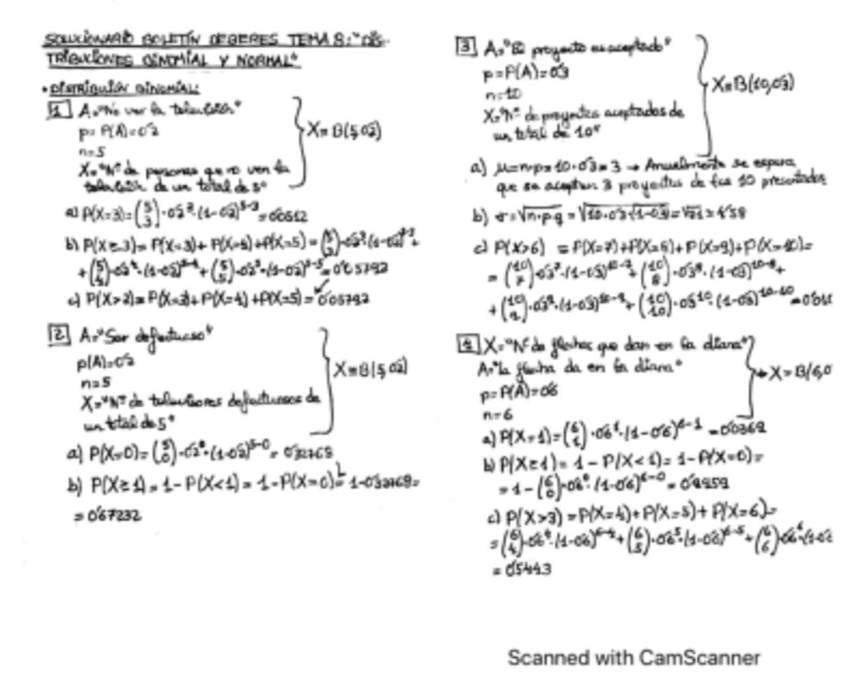 SOLUCIONARIO BOLETÍN DEBERES TEMA 8: "DIS-
TRIBUCIONES BINOMIAL Y NORMAL"
• DISTRIBUCIÓN BINOMIAL:
1 A="No ver la televisión"
p= P(A)=0'2
n=5
X="Nº de personas que no ven la
televisión de un total de 5"
X≡B(5,0'2)
a) P(X=3)=(5 3)·0'2³·(1-0'2)⁵⁻³=0'0512
b) P(X≥3)=P(X=3)+P(X=4)+P(X=5)=(5 3)·0'2³·(1-0'2)⁵⁻³+
+(5 4)·0'2⁴·(1-0'2)⁵⁻⁴+(5 5)·0'2⁵·(1-0'2)⁵⁻⁵=0'05792
c) P(X>2)=P(X=3)+P(X=4)+P(X=5)=0'05792
2 A="Ser defectuoso"
p(A)=0'2
n=5
X="Nº de televisores defectuosos de
un total de 5"
X≡B(5,0'2)
a) P(X=0)=(5 0)·0'2⁰·(1-0'2)⁵⁻⁰=0'32768
b) P(X≥1)=1-P(X<1)=1-P(X=0)=1-0'32768=
=0'67232
3 A="El proyecto es aceptado"
p=P(A)=0'3
n=10
X="Nº de proyectos aceptados de
un total de 10"
X≡B(10,0'3)
a) μ=n·p=10·0'3=3 → Anualmente se espera
que se acepten 3 proyectos de los 10 presentados
b) σ=√n·p·q=√10·0'3·(1-0'3)=√2'1=1'58
c) P(X>6) =P(X=7)+P(X=8)+P(X=9)+P(X=10)=
=(10 7)·0'3⁷·(1-0'3)¹⁰⁻⁷+(10 8)·0'3⁸·(1-0'3)¹⁰⁻⁸+
+(10 9)·0'3⁹·(1-0'3)¹⁰⁻⁹+(10 10)·0'3¹⁰·(1-0'3)¹⁰⁻¹⁰
4 X="Nº de flechas que dan en la diana"
A="La flecha da en la diana"
p=P(A)=0'6
n=6
→X≡B(6,0
a) P(X=1)=(6 1)·0'6¹·(1-0'6)⁶⁻¹=0'0369
b) P(X≥1)=1-P(X<1)=1-P(X=0)=
=1-(6 0)·0'6⁰·(1-0'6)⁶⁻⁰=0'9959
c) P(X>3)=P(X=4)+P(X=5)+P(X=6)=
=(6 4)·0'6⁴·(1-0'6)⁶⁻⁴+(6 5)·0'6⁵·(1-0'6)⁶⁻⁵+(6 6)·0'6⁶·(1-0'6
=0'5443
Scanned with CamScanner